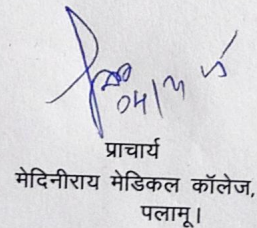 प्राचार्य
मेदिनीराय मेडिकल कॉलेज,
पलामू।